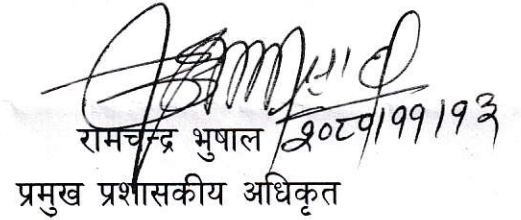 रामचन्द्र भुषाल २०८०/११/१३
प्रमुख प्रशासकीय अधिकृत